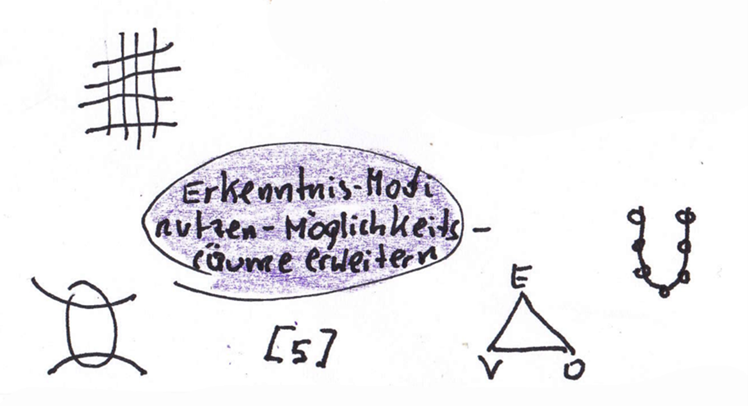 Erkenntnis-Modi
nutzen-Möglichkeits-
räume erweitern
E
[5]
V O